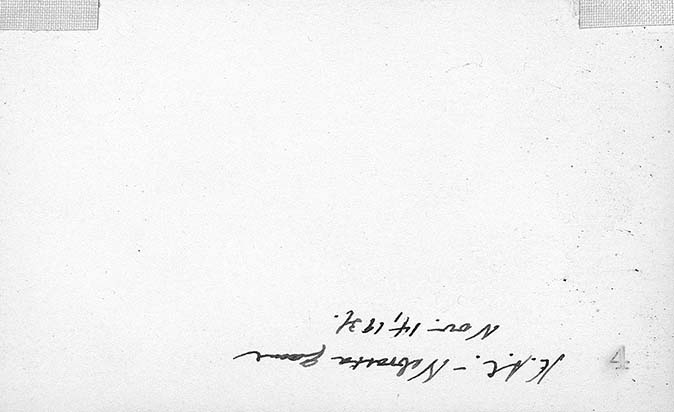 K.S.C. - Nebraska game
Nov. 14, 1931.
4